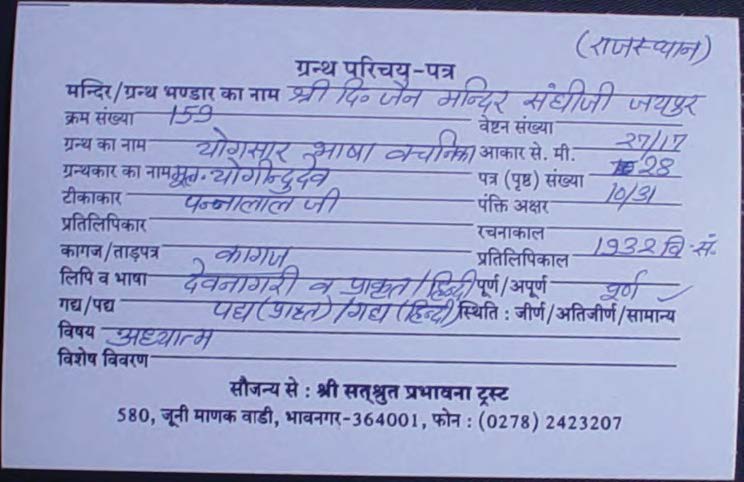 (राजस्थान)
ग्रन्थ परिचय-पत्र
मन्दिर/ग्रन्थ भण्डार का नाम श्री दि० जैन मन्दिर संघीजी जयपुर
क्रम संख्या 159 वेष्टन संख्या
ग्रन्थ का नाम योगसार भाषा वचनिका आकार से. मी. 27/17
ग्रन्थकार का नाम मूल-योगीन्दुदेव पत्र (पृष्ठ) संख्या 28
टीकाकार पन्नालाल जी पंक्ति अक्षर 10/31
प्रतिलिपिकार रचनाकाल
कागज/ताड़पत्र कागज प्रतिलिपिकाल 1932 वि. सं.
लिपि व भाषा देवनागरी व प्राकृत/हिन्दी पूर्ण/अपूर्ण पूर्ण
गद्य/पद्य पद्य (प्राकृत)/गद्य (हिन्दी) स्थिति : जीर्ण/अतिजीर्ण/सामान्य ✓
विषय अध्यात्म
विशेष विवरण
सौजन्य से : श्री सत्श्रुत प्रभावना ट्रस्ट
580, जूनी माणक वाडी, भावनगर-364001, फोन : (0278) 2423207